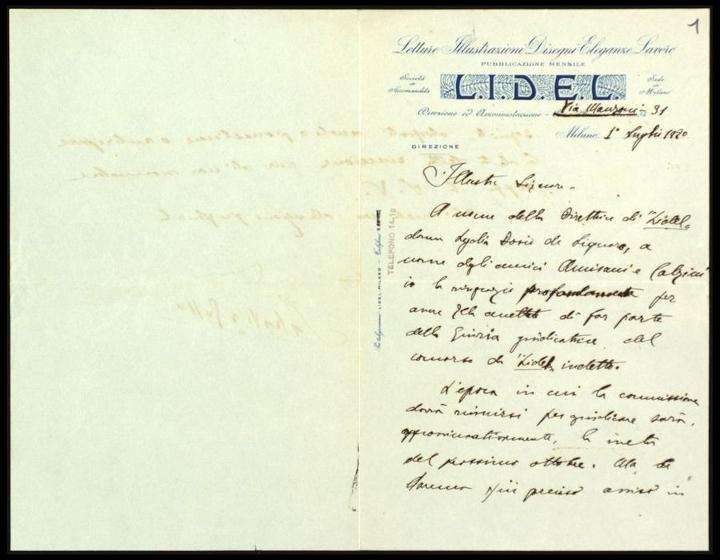 1
Letture Illustrazioni Disegni Eleganze Lavoro
PUBBLICAZIONE MENSILE
Società in Accomandita
L.I.D.E.L.
Sede in Milano
Direzione ed Amministrazione
Via Manzoni 31
Milano, 1° Luglio 1920
DIREZIONE
Illustre Signore.
A nome della Direttrice di "Lidel"
donna Lydia Dosio de Liguoro, a
nome degli amici Amisani e Calzini
io la ringrazio profondamente per
avere Ella accettato di far parte
della Giuria giudicatrice del
concorso da "Lidel" indetto.
L'epoca in cui la commissione
dovrà riunirsi per giudicare sarà,
approssimativamente, la metà
del prossimo ottobre. Ma le
daremo più preciso avviso in
TELEFONO 14-18